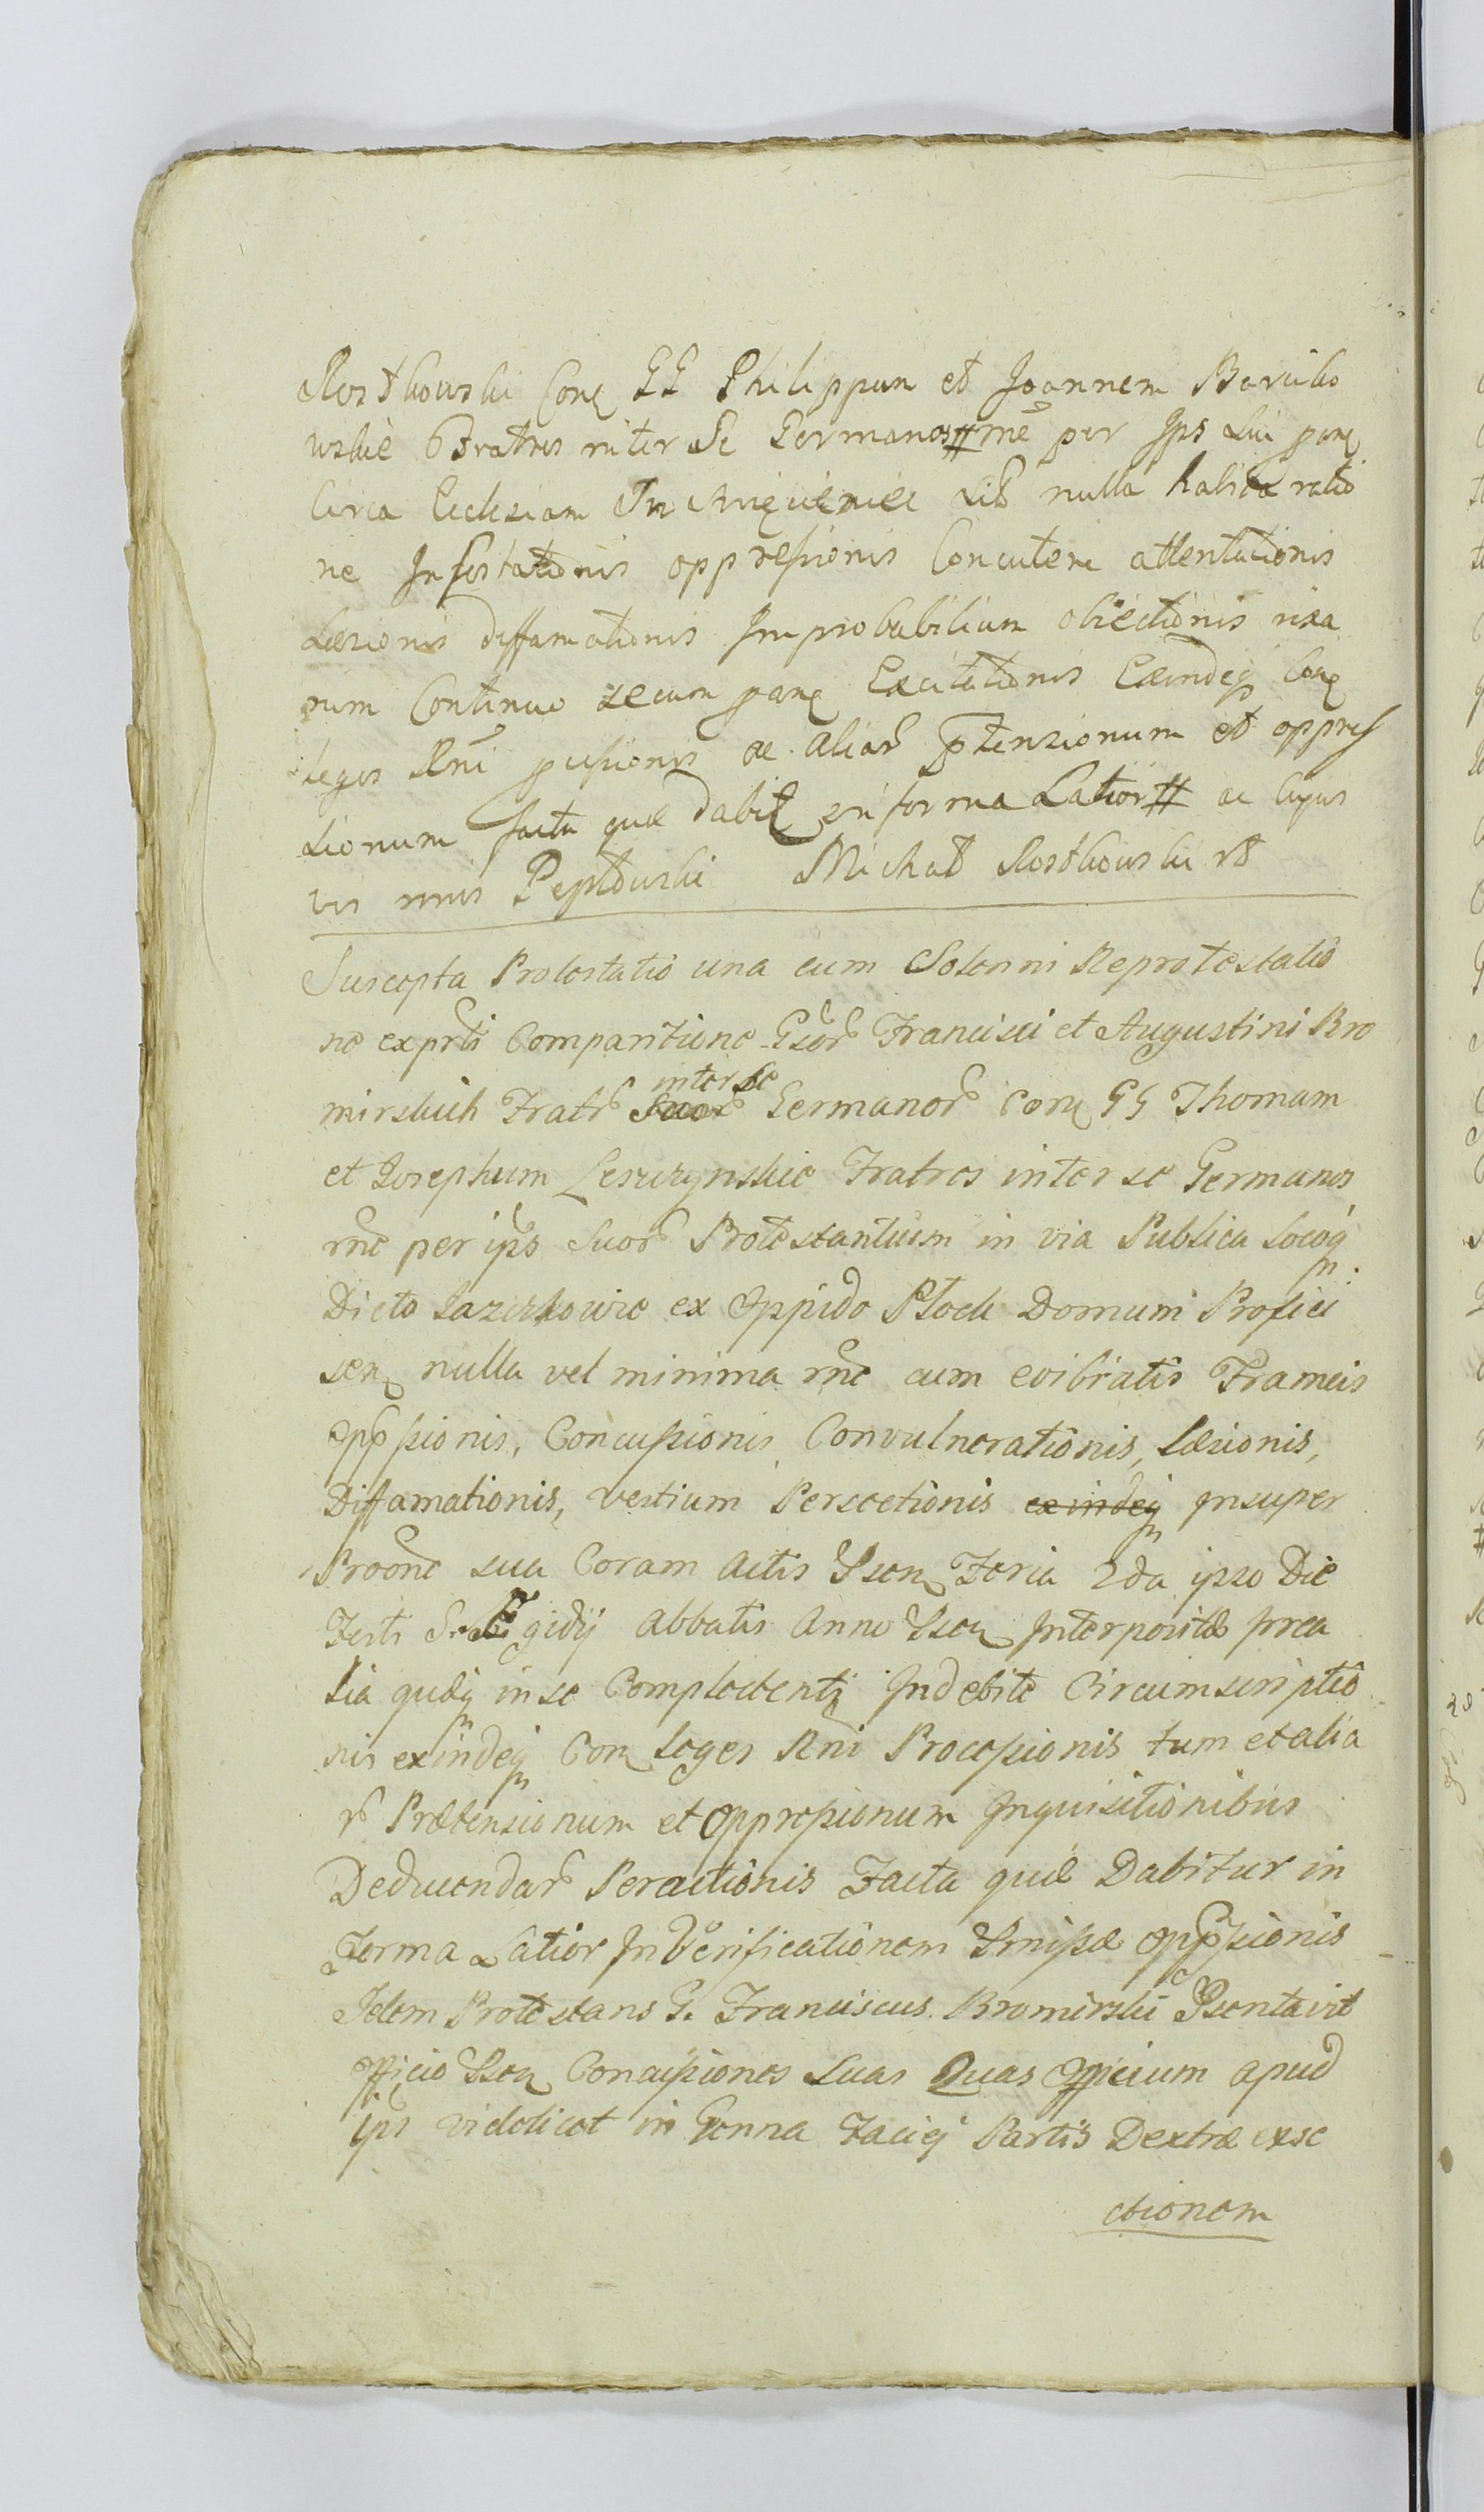 Rostkowski Conq GG Philippum et Joannem Boruko
wskie Bratres inter Se Germanos # rne per Ips Sui parq
Circa Ecclesiam In Sib nulla habita ratio
ne Infestationis oppressionis Concutere attentationis
Læsionis diffamationis Improbabilium obiectionis rixa
rum Continuo secum parq Excitationis Exindeq Conq
leges Rni pussionis ac aliar ptensionum et oppres
sionum facta quæ dabit in forma Latior # ac cujus
vis mnis Michał Rostkowski rt
Suscepta Protestatio una cum Solenni Reprotestatio
ne exprti Comparitione Gsor Francisci et Augustini Bro
mirskich Fratr Suor inter se Germanor Conq GG Thomam
et Josephum Leszczynskie Fratres inter se Germanos
rne per ips Suor Protestantium in via Publica locoq
Dicto Lazerkowic ex Oppido Plock Domum Profici
scenq nulla vel minima rne cum evibratis Frameis
Oppssionis, Concussionis, Convulnerationis, Læsionis,
Diffamationis, vestium Persectionis exindeq Insuper
Proone sua Coram Actis Psenq Feria 2da ipso Die
Festi S. Ægidij Abbatis Anno Psenq Interpositæ prea
lia quæq in se Complectentq Indebite Circumscriptio
nis exindeq Conq Leges Rni Processionis tum et alia
r Prætensionum et Oppressionum Inquisitionibus
Deducendar Peractionis Facta quæ Dabitur in
Forma Latior In Verificationem Pmissæ Oppssionis
Idem Protestans G. Franciscus Bromirski Psentavit
Officio Psenq Concussiones Suas Quas Officium apud
Ips videlicet in Genna Faciej Partis Dextræ exse
ctionem